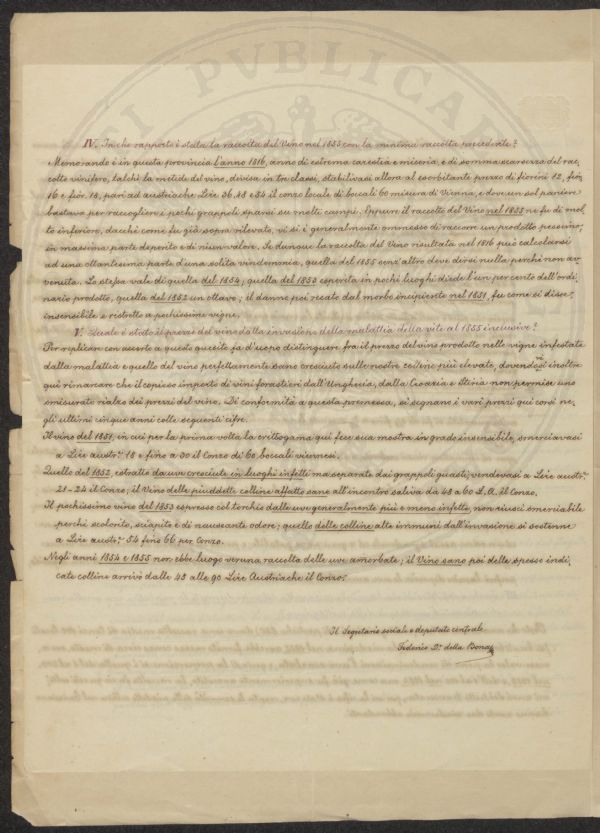 IV. In che rapporto è stata la raccolta del Vino nel 1855 con la minima raccolta precedente?
Memorando è in questa provincia l'anno 1816, anno di estrema carestia e miseria, e di somma scarsezza del rac-
colto vinifero, talchè la metide del vino, divisa in tre classi, stabilivasi allora al esorbitante prezzo di fiorini 12, fior.
16 e fior. 18, pari ad austriache Lire 36, 48 e 54 il conzo locale di boccali 60 misura di Vienna, e dove un sol paniere
bastava per raccogliere i pochi grappoli sparsi su molti campi. Eppure il raccolto del Vino nel 1855 ne fu di mol-
to inferiore, dacchè come fu già sopra rilevato, vi si è generalmente ommesso di raccorre un prodotto pessimo,
in massima parte deperito e di niun valore. Se dunque la raccolta del Vino risultata nel 1816 può calcolarsi
ad una ottantesima parte d'una solita vindemmia, quella del 1855 senz'altro deve dirsi nulla perchè non av-
venuta. Lo stesso vale di quella del 1854; quella del 1853 esperita in pochi luoghi diede l'un per cento dell'ordi-
nario prodotto, quella del 1852 un ottavo; il danno poi recato dal morbo incipiente nel 1851, fu come si disse,
insensibile e ristretto a pochissime vigne.
V. Quale è stato il prezzo del vino dalla invasione della malattia della vite al 1855 inclusive?
Per replicare con asserto a questo quesito fa d'uopo distinguere fra il prezzo del vino prodotto nelle vigne infestate
dalla malattia e quello del vino perfettamente sano cresciuto sulle nostre colline più elevate, dovendosi inoltre
qui rimarcare che il copioso importo di vini forastieri dall'Ungheria, dalla Croazia e Stiria non permise uno
smisurato rialzo dei prezzi del vino. Di conformità a questa premessa, si segnano i vari prezzi qui corsi ne-
gli ultimi cinque anni colle seguenti cifre.
Il vino del 1851, in cui per la prima volta la crittogama qui fece sua mostra in grado insensibile, smerciavasi
a Lire austr.e 18 e fino a 30 il Conzo di 60 boccali viennesi.
Quello del 1852, estratto da uve cresciute in luoghi infetti ma separate dai grappoli guasti, vendevasi a Lire austr.e
21-24 il Conzo; il Vino delle piuddette colline affatto sane all'incontro saliva da 48 a 60 L.A. il Conzo.
Il pochissimo vino del 1853 espresso col torchio dalle uve generalmente più e meno infette, non riuscì smerciabile
perchè scolorito, sciapito e di nauseante odore; quello delle colline alte immuni dall'invasione si sostenne
a Lire austr.e 54 fino 66 per Conzo.
Negli anni 1854 e 1855 non ebbe luogo veruna raccolta delle uve amorbate; il Vino sano poi delle spesso indi-
cate colline arrivò dalle 48 alle 90 Lire Austriache il Conzo.
Il Segretario sociale e deputato centrale
Federico D.r della Bona